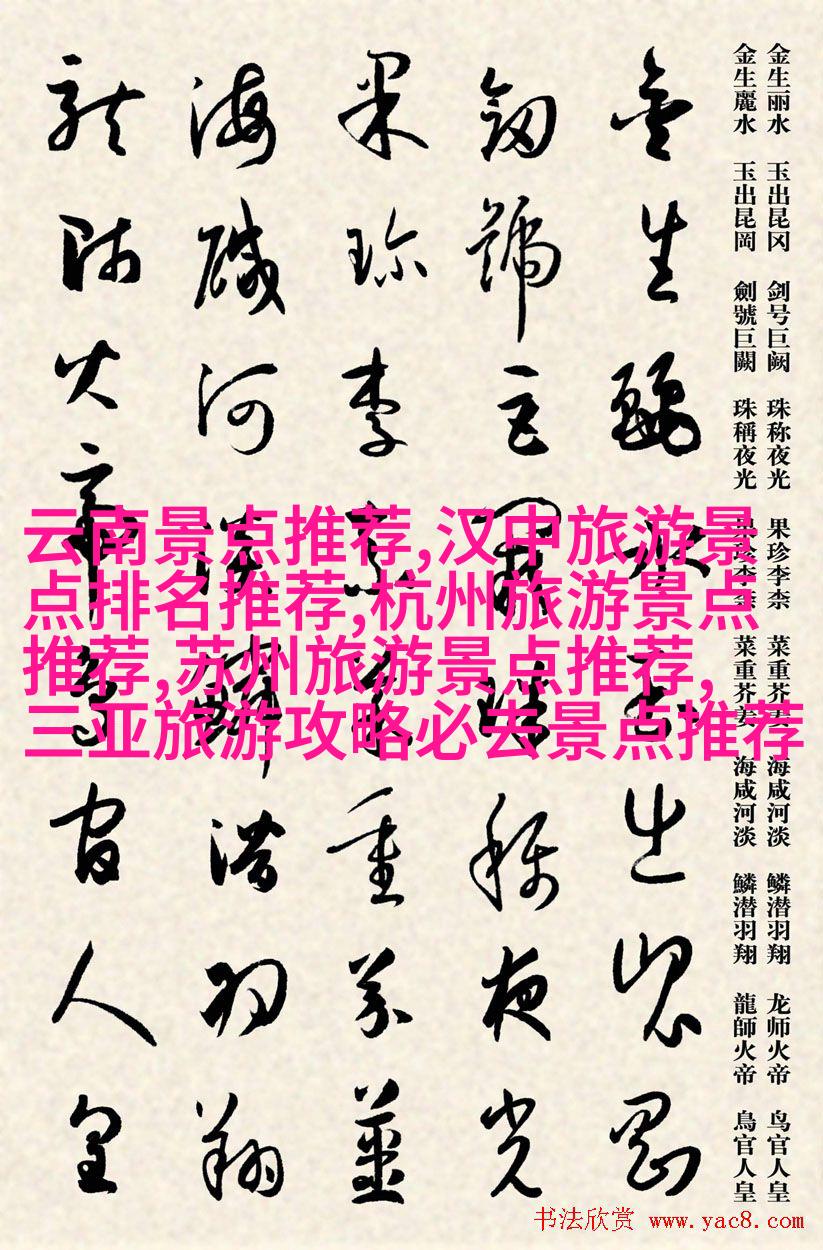 金生丽水 玉出昆冈 剑号巨阙 珠称夜光 果珍李柰 菜重芥姜 海咸河淡 鳞潜羽翔 龙师火帝 鸟官人皇
金生麗水 玉出昆岡 劍號巨闕 珠稱夜光 果珍李柰 菜重芥姜 海咸河淡 鱗潜羽翔 龍師火帝 鳥官人皇
金生麗水玉出崑岡
劔號巨闕珠稱夜光
果珍李柰菜重芥薑
海醎河淡鱗潛羽翔
龍師火帝鳥官人皇
云南景点推荐,汉中旅游景
点排名推荐,杭州旅游景点
推荐,苏州旅游景点推荐,
三亚旅游攻略必去景点推荐
书法欣赏 www.yac8.com